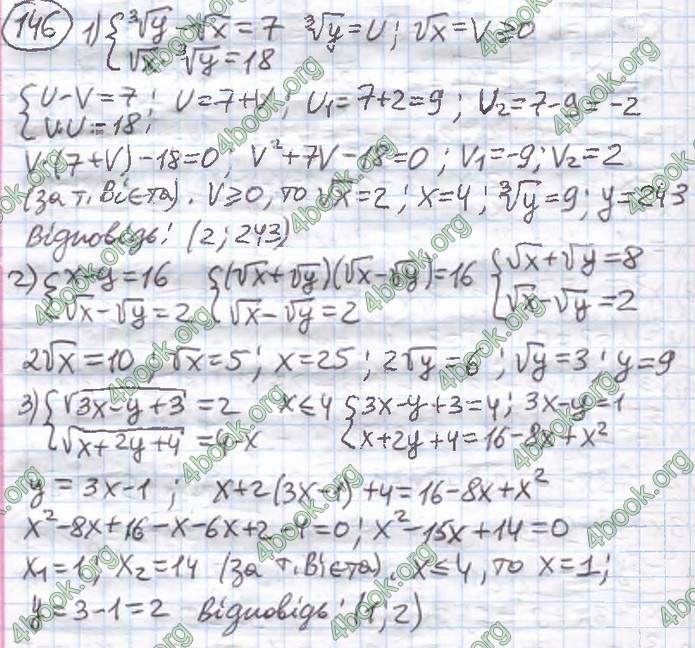 146 1) { ∛y - √x = 7 ∛y = U; √x = V ≥ 0
{ √x · ∛y = 18
{ U - V = 7; U = 7 + V; U₁ = 7 + 2 = 9; U₂ = 7 - 9 = -2
{ V·U = 18;
V·(7 + V) - 18 = 0; V² + 7V - 18 = 0; V₁ = -9; V₂ = 2
(за т. Вієта). V ≥ 0, то √x = 2; x = 4; ∛y = 9; y = 243
Відповідь: (2; 243)
2) { x - y = 16 { (√x + √y)(√x - √y) = 16 { √x + √y = 8
{ √x - √y = 2 { √x - √y = 2 { √x - √y = 2
2√x = 10; √x = 5; x = 25; 2√y = 6; √y = 3; y = 9
3) { √(3x - y + 3) = 2 x ≤ 4 { 3x - y + 3 = 4; 3x - y = 1
{ √(x + 2y + 4) = 4 - x { x + 2y + 4 = 16 - 8x + x²
y = 3x - 1; x + 2(3x - 1) + 4 = 16 - 8x + x²
x² - 8x + 16 - x - 6x + 2 - 4 = 0; x² - 15x + 14 = 0
x₁ = 1; x₂ = 14 (за т. Вієта). x ≤ 4, то x = 1;
y = 3 - 1 = 2 Відповідь: (1; 2)
4book.org